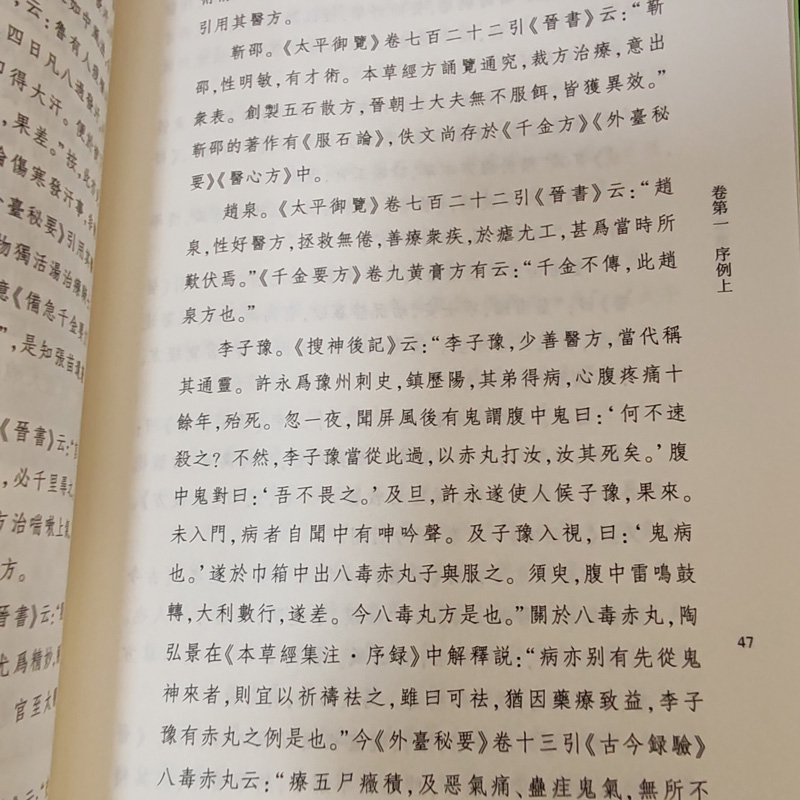 引用其醫方。
靳邵。《太平御覽》卷七百二十二引《晉書》云：“靳
邵，性明敏，有才術。本草經方誦覽通究，裁方治療，意出
衆表。創製五石散方，晉朝士大夫無不服餌，皆獲異效。”
靳邵的著作有《服石論》，佚文尚存於《千金方》《外臺秘
要》《醫心方》中。
趙泉。《太平御覽》卷七百二十二引《晉書》云：“趙
泉，性好醫方，拯救無倦，善療衆疾，於瘧尤工，甚爲當時所
歎伏焉。”《千金要方》卷九黃膏方有云：“千金不傳，此趙
泉方也。”
李子豫。《搜神後記》云：“李子豫，少善醫方，當代稱
其通靈。許永爲豫州刺史，鎮歷陽，其弟得病，心腹疼痛十
餘年，殆死。忽一夜，聞屏風後有鬼謂腹中鬼曰：‘何不速
殺之？不然，李子豫當從此過，以赤丸打汝，汝其死矣。’腹
中鬼對曰：‘吾不畏之。’及旦，許永遂使人候子豫，果來。
未入門，病者自聞中有呻吟聲。及子豫入視，曰：‘鬼病
也。’遂於巾箱中出八毒赤丸子與服之。須臾，腹中雷鳴鼓
轉，大利數行，遂差。今八毒丸方是也。”關於八毒赤丸，陶
弘景在《本草經集注·序録》中解釋説：“病亦别有先從鬼
神來者，則宜以祈禱祛之，雖曰可祛，猶因藥療致益，李子
豫有赤丸之例是也。”今《外臺秘要》卷十三引《古今録驗》
八毒赤丸云：“療五尸癥積，及惡氣痛、蠱疰鬼氣，無所不
卷第一 序例上
47
云：魯有人
四日凡八過發汗
得大汗。
，果差。”按，此
傷寒發汗事，
外臺秘要》引用
物獨活湯治
《備急千金要
”，是知張苗
《晉書》云：“
，必千里尋
方治喘嗽上
方。
書》云：“
尤爲精妙，
官至太